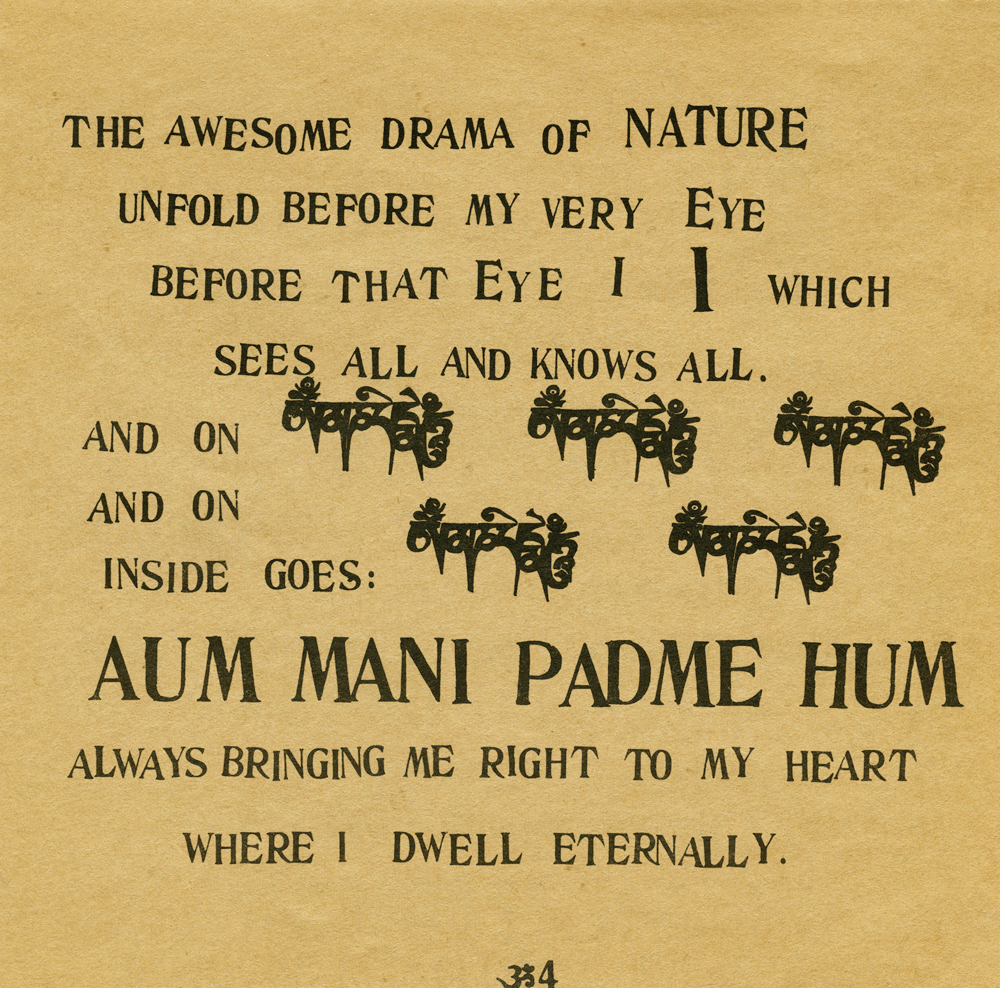 THE AWESOME DRAMA OF NATURE
UNFOLD BEFORE MY VERY EYE
BEFORE THAT EYE I I WHICH
SEES ALL AND KNOWS ALL.
AND ON
AND ON
INSIDE GOES:
AUM MANI PADME HUM
ALWAYS BRINGING ME RIGHT TO MY HEART
WHERE I DWELL ETERNALLY.
ॐ4